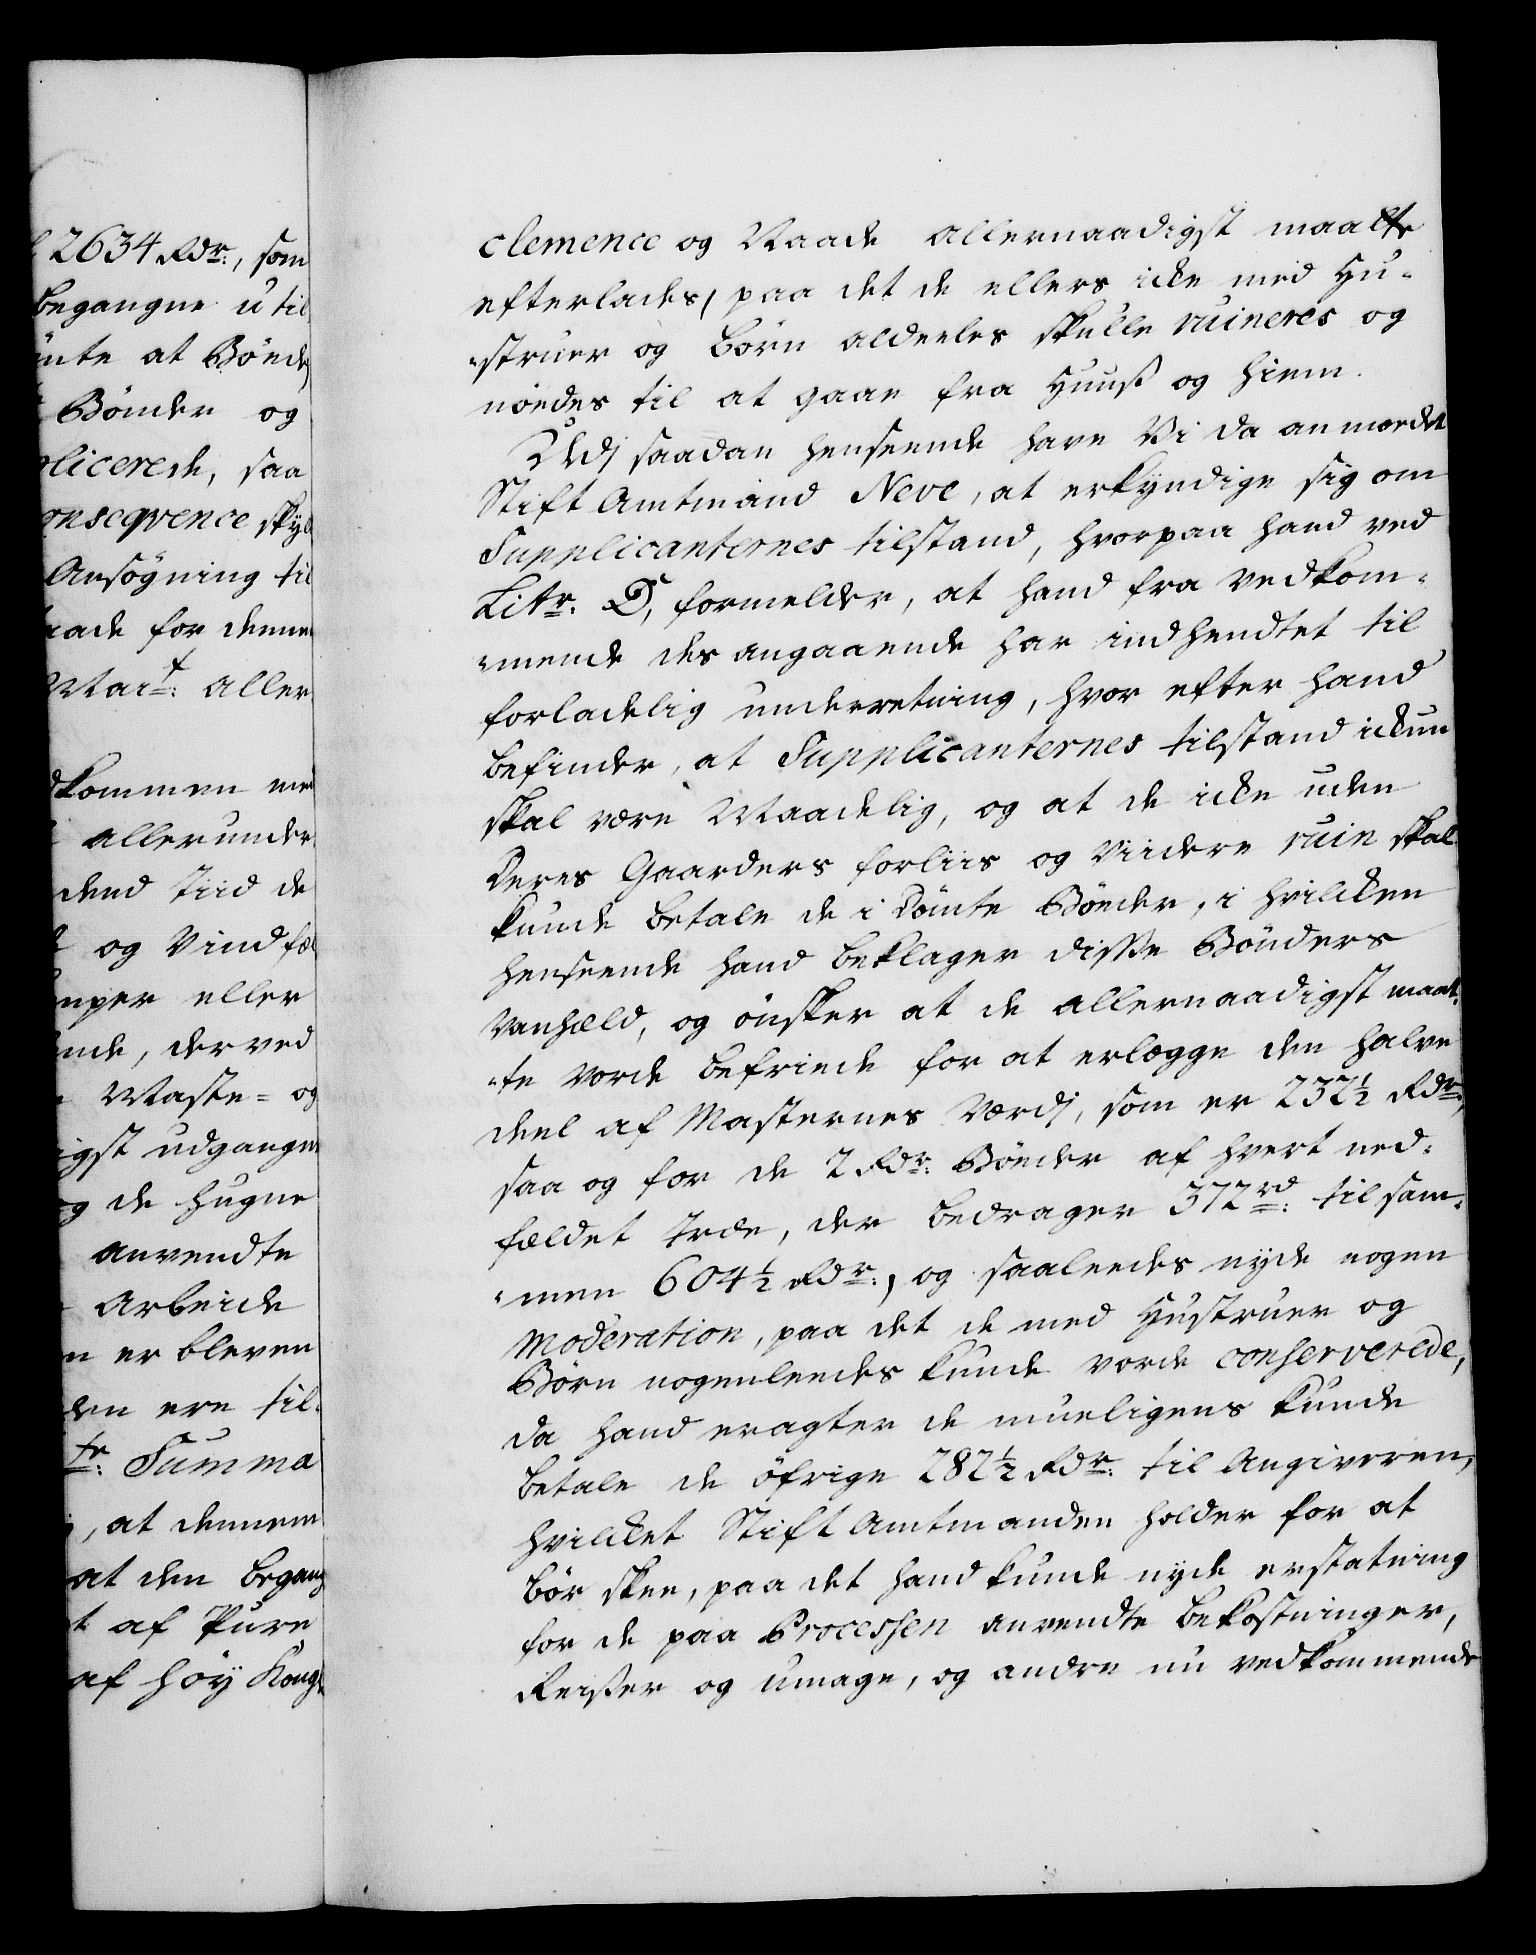 2634 Rdr:, som
begangne u til
at Bönder
Bönder og
licerede, saa
onseqvence skyl
Ansögning til
aade for denne
May:t aller
kommen med
allerunder
dend Tiid de
og Vindfæl
nper eller
nde, derved
Maste= og
igst udgangne
de hugne
anvendte
Arbeide
n er bleven
den ere til
tr: Summa
, at dennem
at den begang
t af Pure
af höy Kongl
clemence og Naade allernaadigst maatte
efterlades, paa det de ellers icke med Hu-
-struer og Börn aldeeles skulle ruineres og
nöedes til at gaae fra Huus og Hiem.
Udj saadan henseende have Vi da anmodet
Stift Amtmand Neve, at erkyndige sig om
Supplicanternes tilstand, hvorpaa hand ved
Litr. D, formelder, at hand fra vedkom-
-mende des angaaende har indhendtet til
forladelig underretning, hvor efter hand
befinder, at Supplicanternes tilstand ickun
skal være Maadelig, og at de icke uden
Deres Gaarders forliis og Viidere ruin skal
kunde betale de i dömte Böeder, i hvilcken
henseende hand beklager disse Bönders
vanheld, og önsker at de allernaadigst maat-
-te vorde befriede for at erlægge den halve
deel af Masternes Værdj, som er 232½ Rdr.,
saa og for de 2 Rdr: Böeder af hvert ned-
fældet Træe, der bedrager 372 rd: tilsam-
-men 604½ Rdr:, og saaleedes nyde nogen
Moderation, paa det de med Hustruer og
Börn nogenleedes kunde vorde conserverede,
da hand eragter de mueligens kunde
betale de öfrige 282½ Rdr: til Angiveren,
hvilcket Stift Amtmanden holder for at
bör skee, paa det hand kunde nyde erstatning
for de paa Processen anvendte bekostninger,
Reiser og umage, og andre nu vedkommende